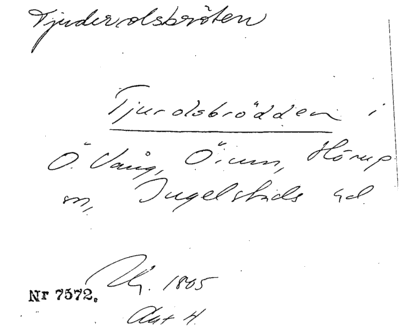 Tjuderolsbröten
Tjurolsbrödden i
Ö. Vång, Ö. um, Hörup
sn, Ingelstads hd
Nr 7572. 1805
Akt 4.